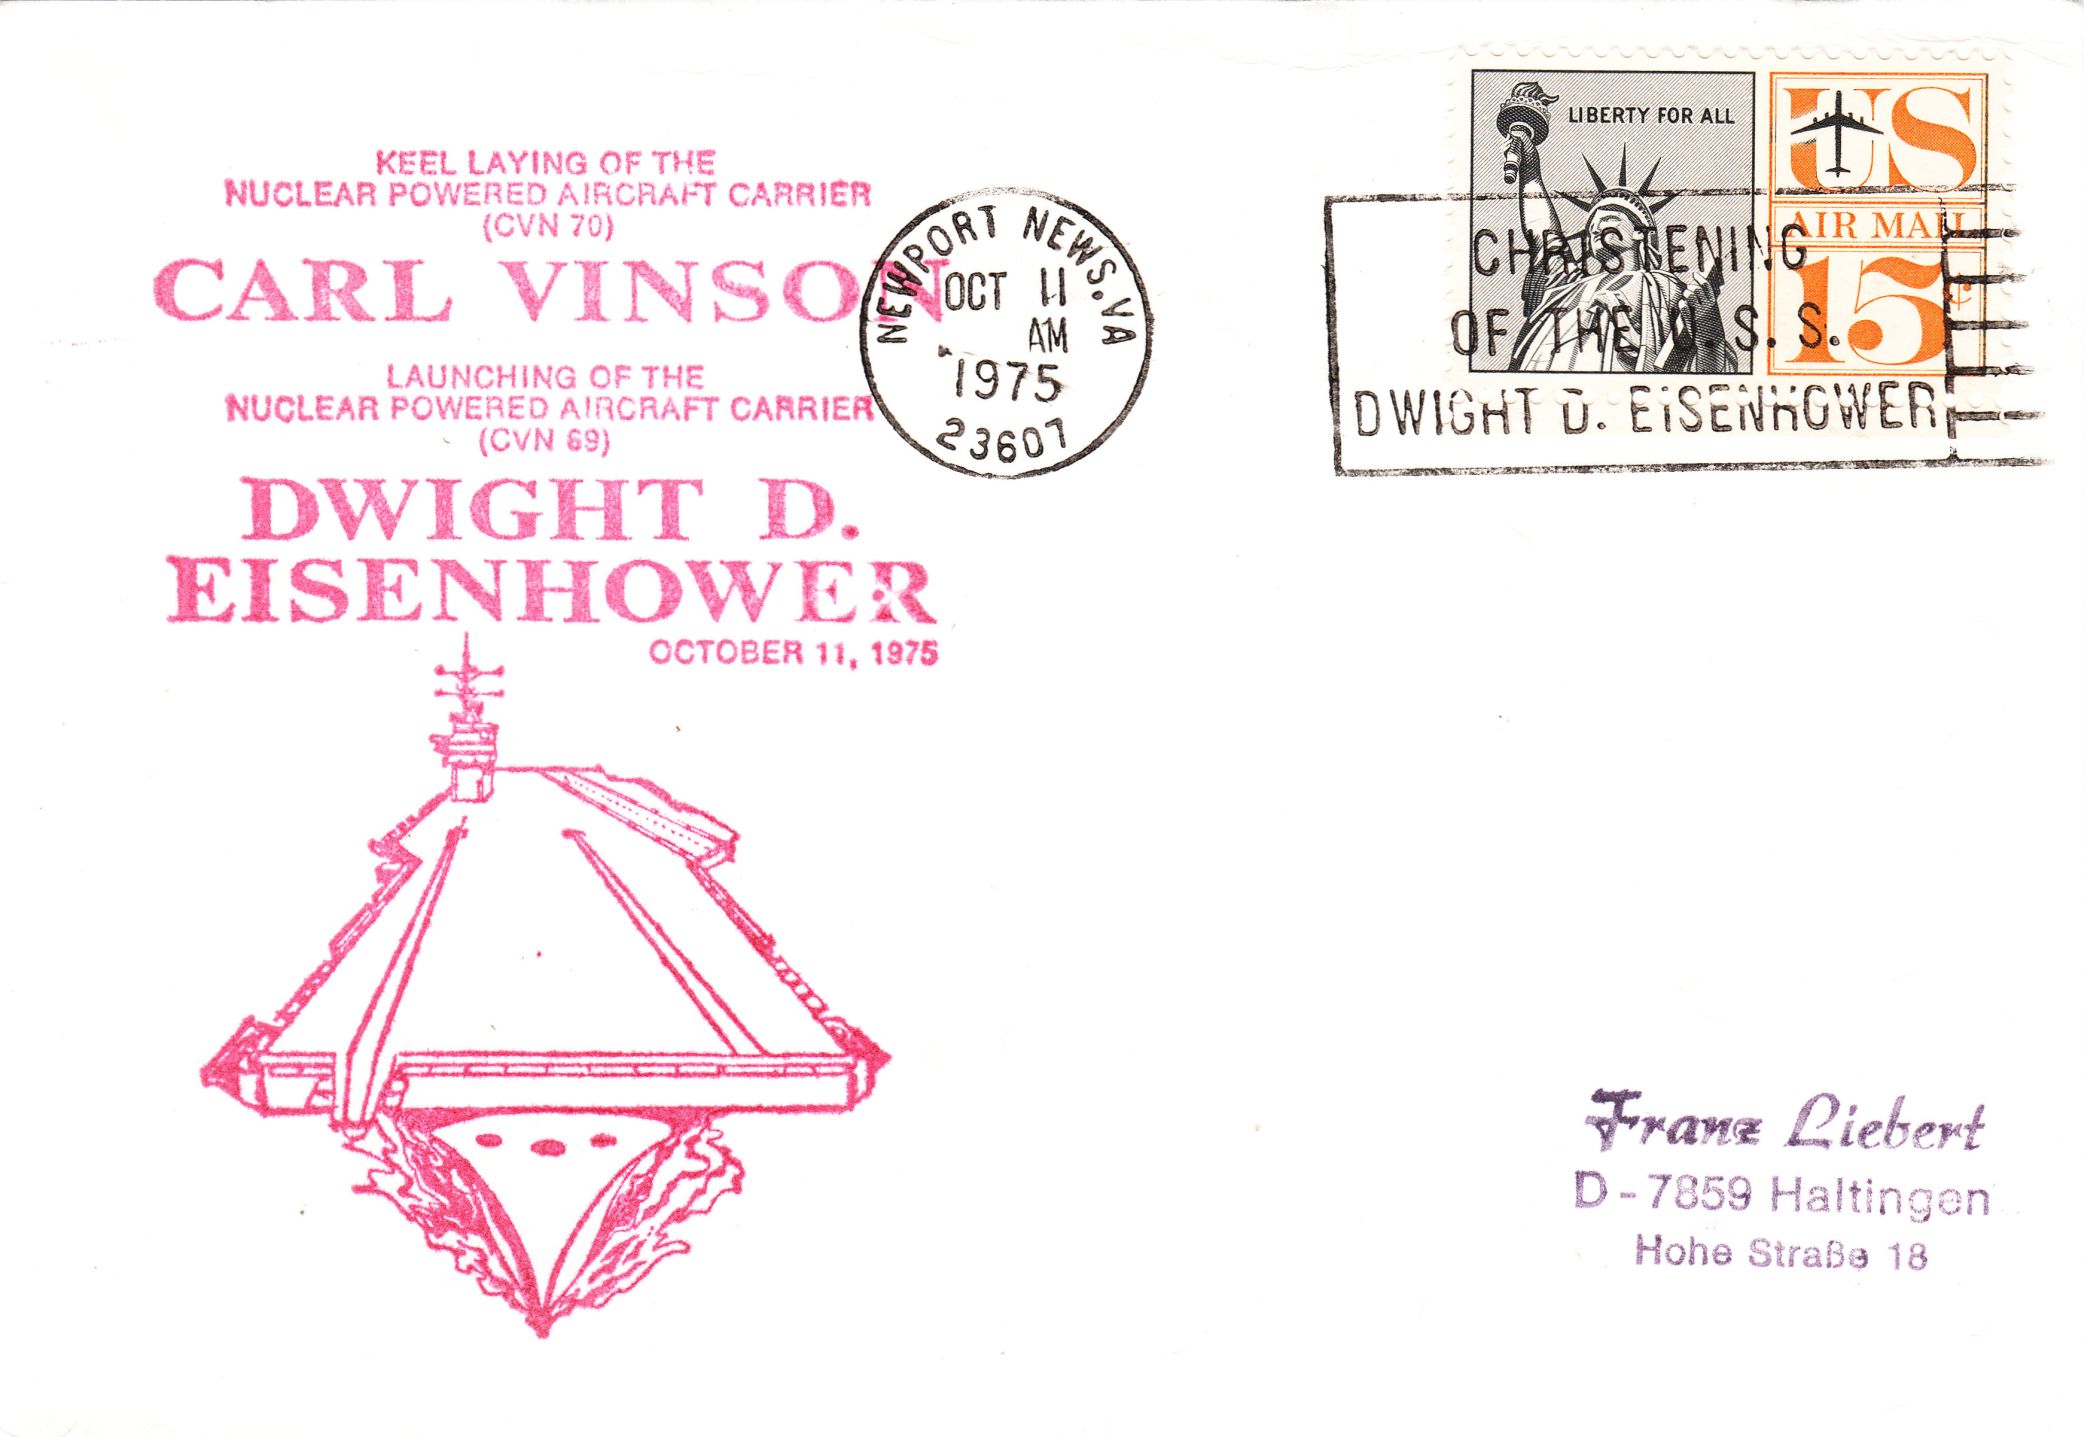 KEEL LAYING OF THE
NUCLEAR POWERED AIRCRAFT CARRIER
(CVN 70)
CARL VINSON
LAUNCHING OF THE
NUCLEAR POWERED AIRCRAFT CARRIER
(CVN 69)
DWIGHT D.
EISENHOWER
OCTOBER 11, 1975
NEWPORT NEWS. VA
OCT 11
AM
1975
23607
LIBERTY FOR ALL
US
AIR MAIL
15¢
CHRISTENING
OF THE U.S.S.
DWIGHT D. EISENHOWER
Franz Liebert
D-7859 Haltingen
Hohe Straße 18